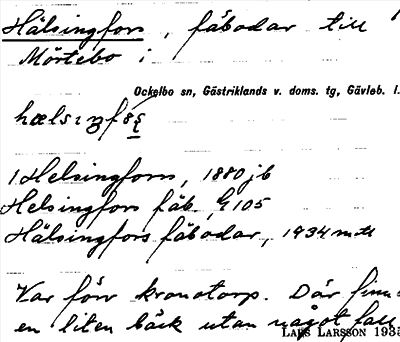 Hälsingfors, fäbodar till
Mörtebo i
Ockelbo sn, Gästriklands v. doms. tg, Gävleb. l.
1 Helsingfors, 1880 jb
Helsingfors fäb. G 105
Hälsingfors fäbodar, 1934 mtl
Var förr kronotorp. Där finn
en liten bäck utan något fall
LARS LARSSON 1935